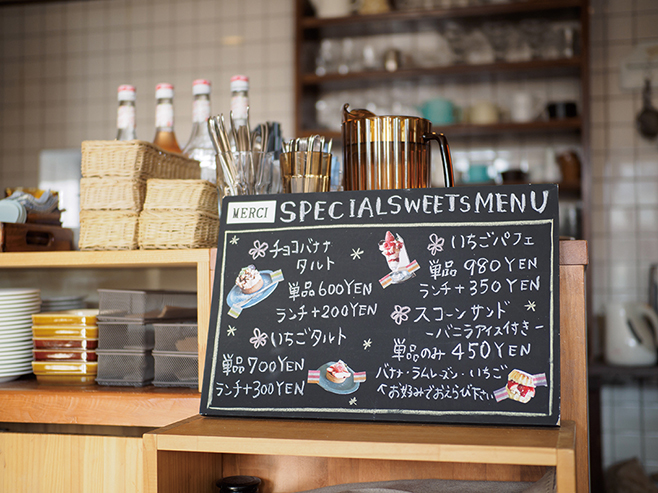 MERCI SPECIAL SWEETS MENU
チョコバナナ
タルト
単品600YEN
ランチ+200YEN
いちごタルト
単品700YEN
ランチ+300YEN
いちごパフェ
単品 980YEN
ランチ+350YEN
スコーンサンド
-バニラアイス付き-
単品のみ 450YEN
バナナ・ラムレーズン・いちご
↑お好みでおえらび下さい